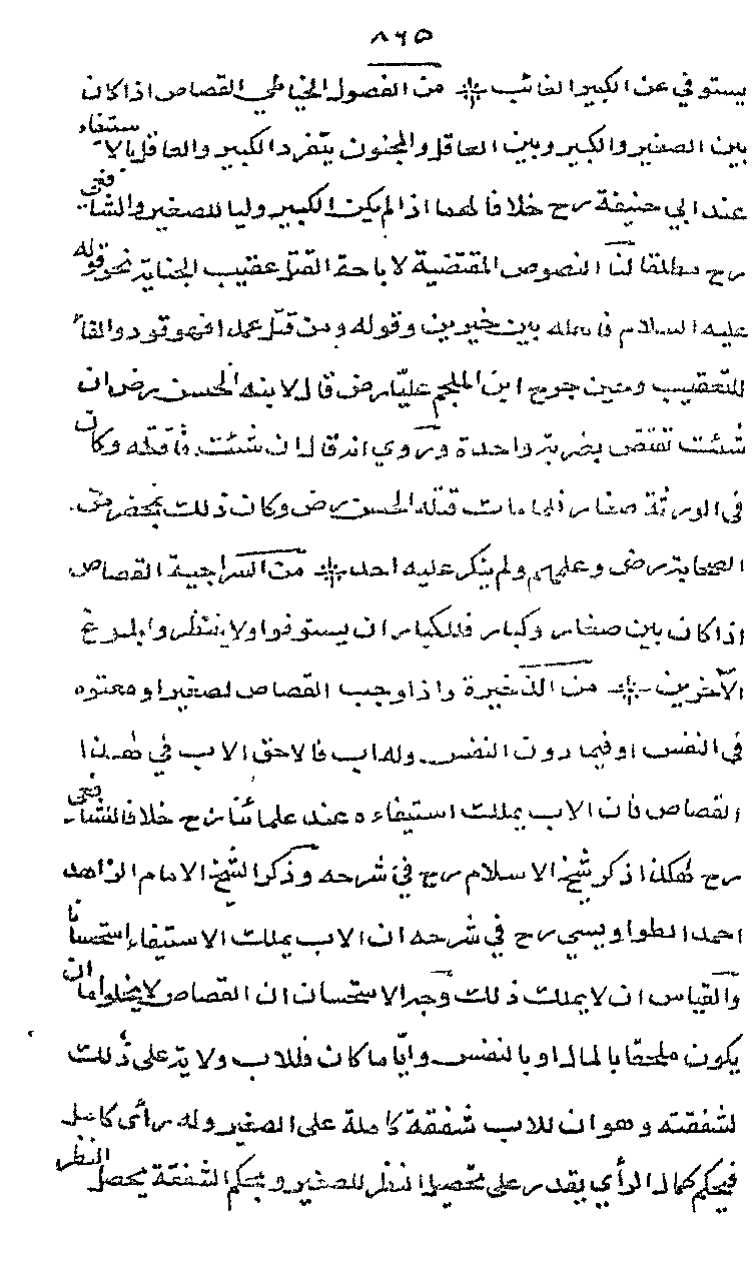 ٨٦٥
يستوفي عن الكبير الغائب من الفصول الخياطي القصاص اذا كان
بين الصغير والكبير وبين العاقل والمجنون يتفرد الكبير والعاقل بالاستيفاء
عند ابي حنيفة رح خلافا لهما اذا لم يكن الكبير وليا للصغير والشافعي
رح مطلقا لنا النصوص المقتضية لاباحة القتل عقيب الجناية نحو قوله
عليه السلام فاهله بين خيرين وقوله ومن قتل عمدا فهو قود والفاء
للتعقيب وحين جرح ابن الملجم عليا رض قال لابنه الحسن رض ان
شئت تقتص بضربة واحدة وروي انه قال ان شئت فاقتله وكان
في الورثة صغار فلما مات قتله الحسن رض وكان ذلك بمحضر من
الصحابة رض وعلمهم ولم ينكر عليه احد من السراجية القصاص
اذا كان بين صغار وكبار فللكبار ان يستوفوا ولا ينتظروا بلوغ
الآخرين من الذخيرة واذا وجب القصاص لصغير او معتوه
في النفس او فيما دون النفس وله اب فالاحق الاب في هذا
القصاص فان الاب يملك استيفاءه عند علمائنا رح خلافا للشافعي
رح هكذا ذكر شيخ الاسلام رح في شرحه وذكر الشيخ الامام الزاهد
احمد الطواويسي رح في شرحه ان الاب يملك الاستيفاء استحسانا
والقياس ان لا يملك ذلك وجه الاستحسان ان القصاص لا يخلوا اما ان
يكون ملحقا بالمال او بالنفس وايا ما كان فللاب ولاية على ذلك
لشفقته وهو ان للاب شفقة كاملة على الصغير وله رأي كامل
فبحكم كمال الرأي يقدر على تحصيل النظر للصغير وبحكم الشفقة يحصل النظر